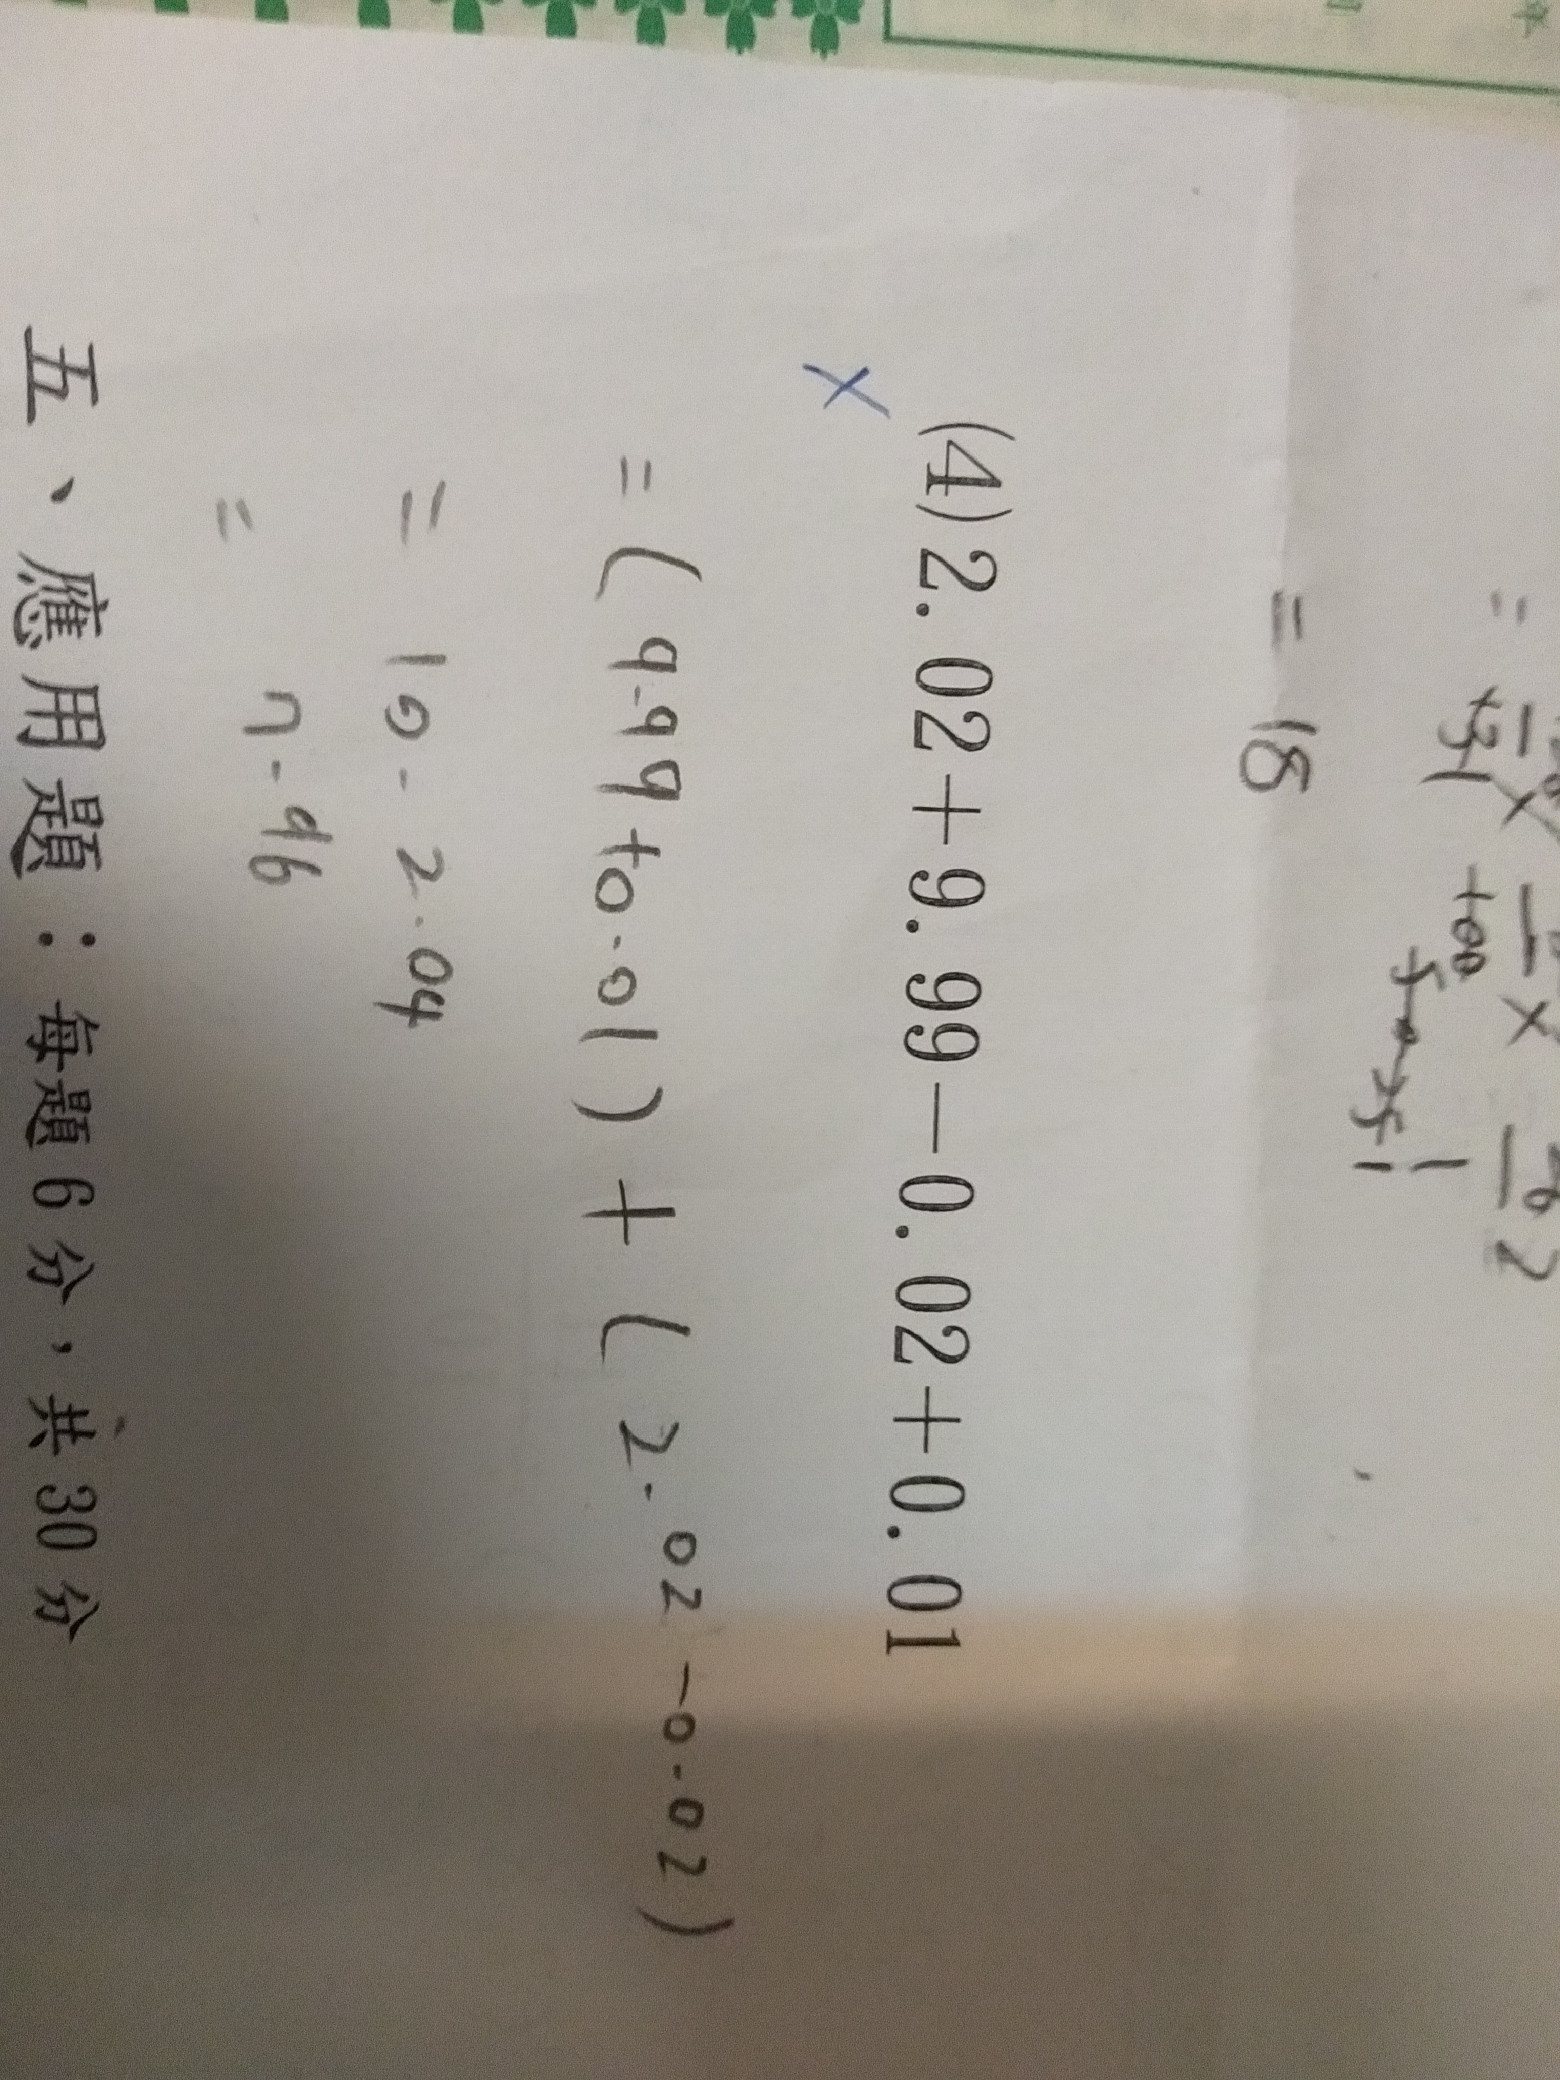 = 18
(4) 2.02+9.99-0.02+0.01
= (9.99+0.01) + (2.02-0.02)
= 10-2.04
= 7.96
五、應用題：每題6分，共30分